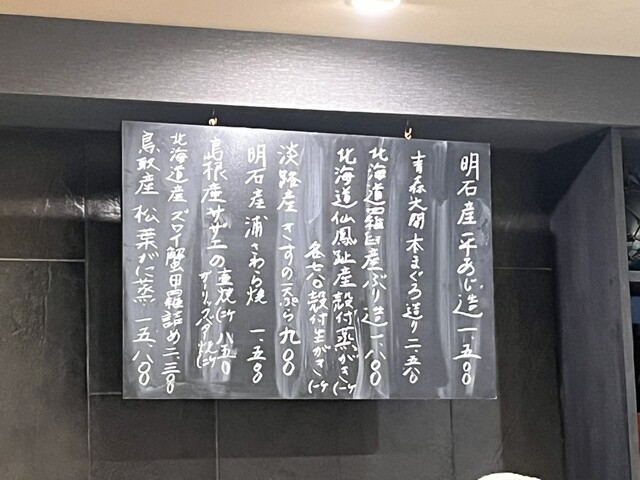 明石産 平あじ造 一.五〇〇
青森大間 本まぐろ造り 二.五〇〇
北海道羅臼産ぶり造 一.八〇〇
北海道仙鳳趾産 殻付蒸がき(一ケ
各七〇〇 殻付生がき(一ケ
淡路産 きすの天ぷら 九〇〇
明石産 浦さわら焼 一.五〇〇
島根産サザエの 壷焼(二ケ 八五〇
ガーリックバター焼(二ケ
北海道産 ズワイ蟹甲羅詰め 二.三〇〇
鳥取産 松葉がに蒸 一五.八〇〇